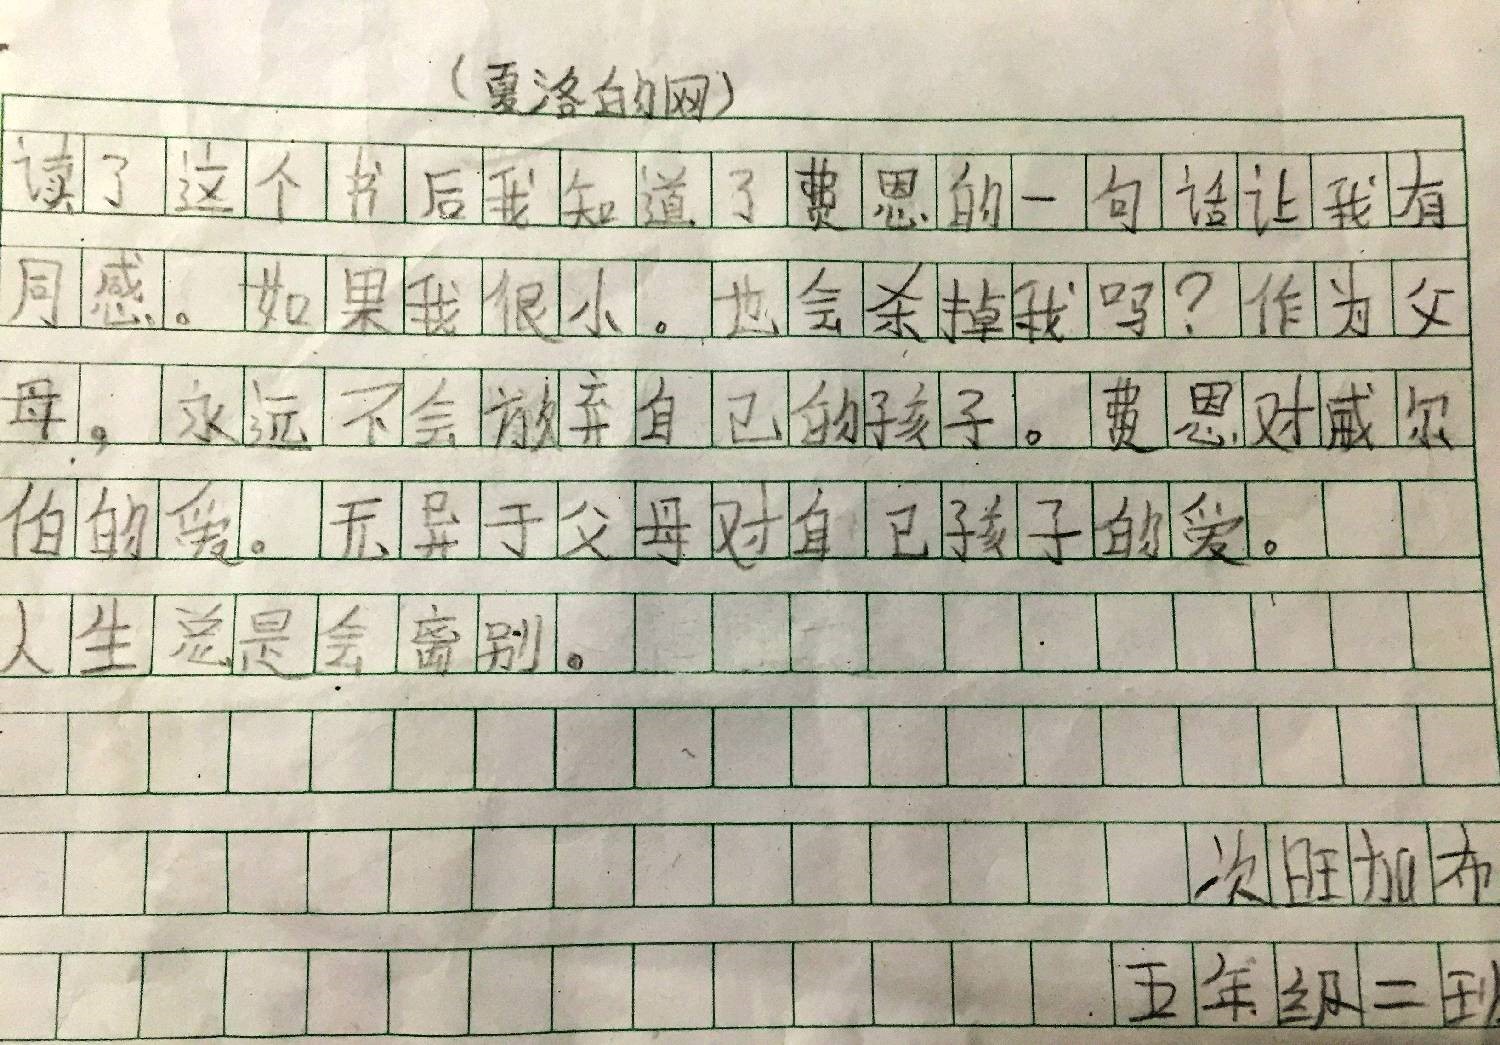 （夏洛的网）
读了这个书后我知道了费恩的一句话让我有
同感。如果我很小。也会杀掉我吗？作为父
母，永远不会放弃自己的孩子。费恩对威尔
伯的爱。无异于父母对自己孩子的爱。
人生总是会离别。
次旺加布
五年级二班